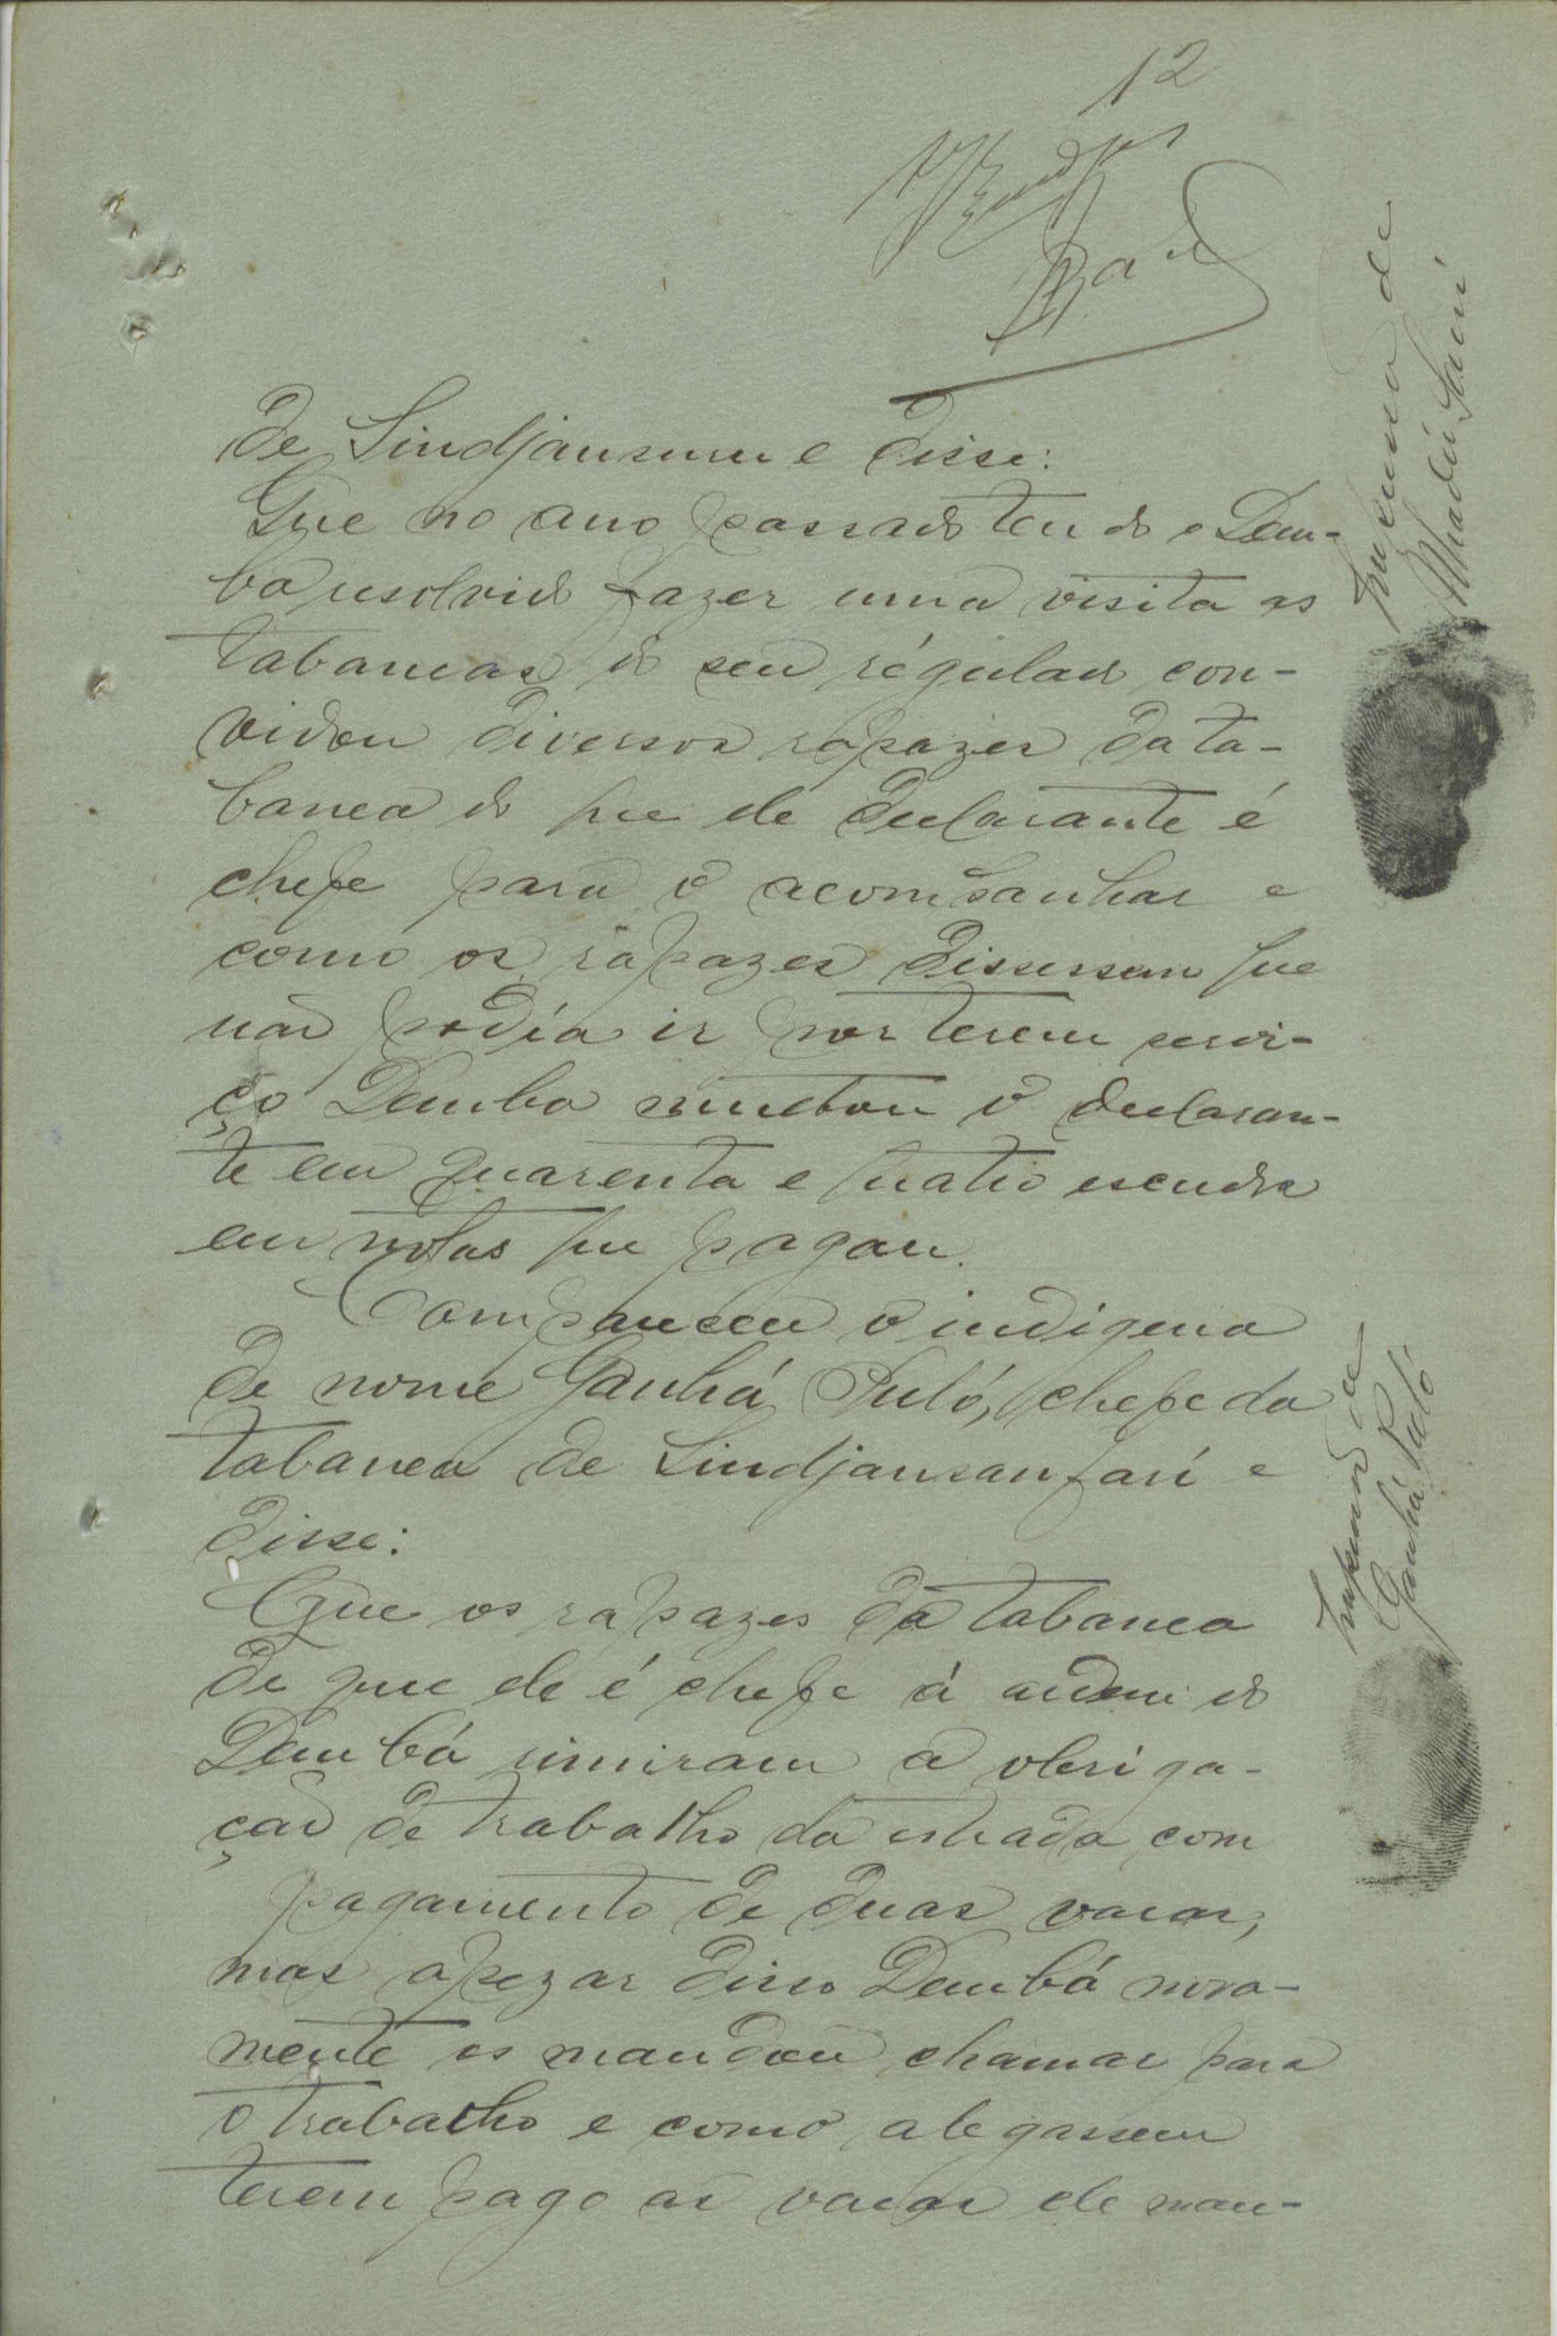 12
de Sindjansum e disse:
Que no ano passado tendo o Dem-
bá resolvido fazer uma visita as
tabancas do seu régulado con-
vidou diversos rapazes da ta-
banca do que ele declarante é
chefe para o acompanhar e
como os rapazes dissessem que
não podia ir por terem servi-
ço Demba multou o declaran-
te em quarenta e quatro escudos
em notas que pagou.
Compareceu o indigena
de nome Ganhá Puló, chefe da
tabanca de Sindjansanfari e
disse:
Que os rapazes da tabanca
de que ele é chefe á ordem do
Dembá remiram a obriga-
ção de trabalho da estrada com
pagamento de duas vacas,
mas apezar disso Dembá nova-
mente os mandou chamar para
o trabalho e como alegassem
terem pago as vacas ele man-
Impressão de
Mamadú Sani
Impressão de
Ganhá Puló